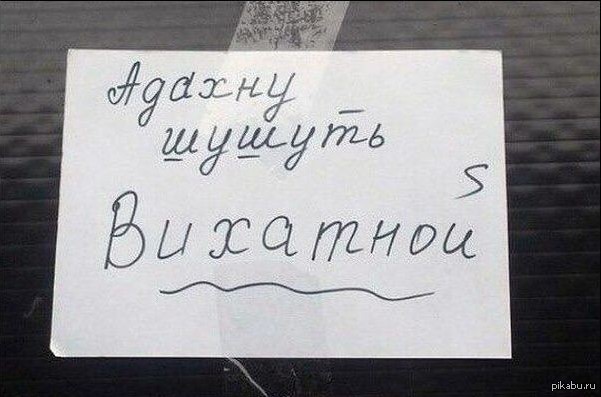 Адахну
шушуть
Вихатной
pikabu.ru